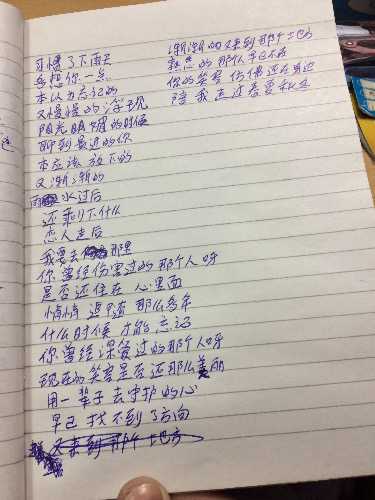 习惯了下雨天
多想你一点
本以为忘记的
又慢慢的浮现
阳光明媚的时候
聊到最近的你
本应该放下的
又渐渐的
雨水过后
还剩下什么
恋人走后
我要去那里
你曾经伤害过的那个人呀
是否还住在心里面
悄悄追随那么多年
什么时候才能忘记
你曾经深爱过的那个人呀
现在的笑容是否还那么美丽
用一辈子去守护的心
早已找不到了方向
又来到那个地方
渐渐的又来到那个地方
熟悉的那个人早已不在
你的笑容仿佛还在身边
陪我走过春夏秋冬